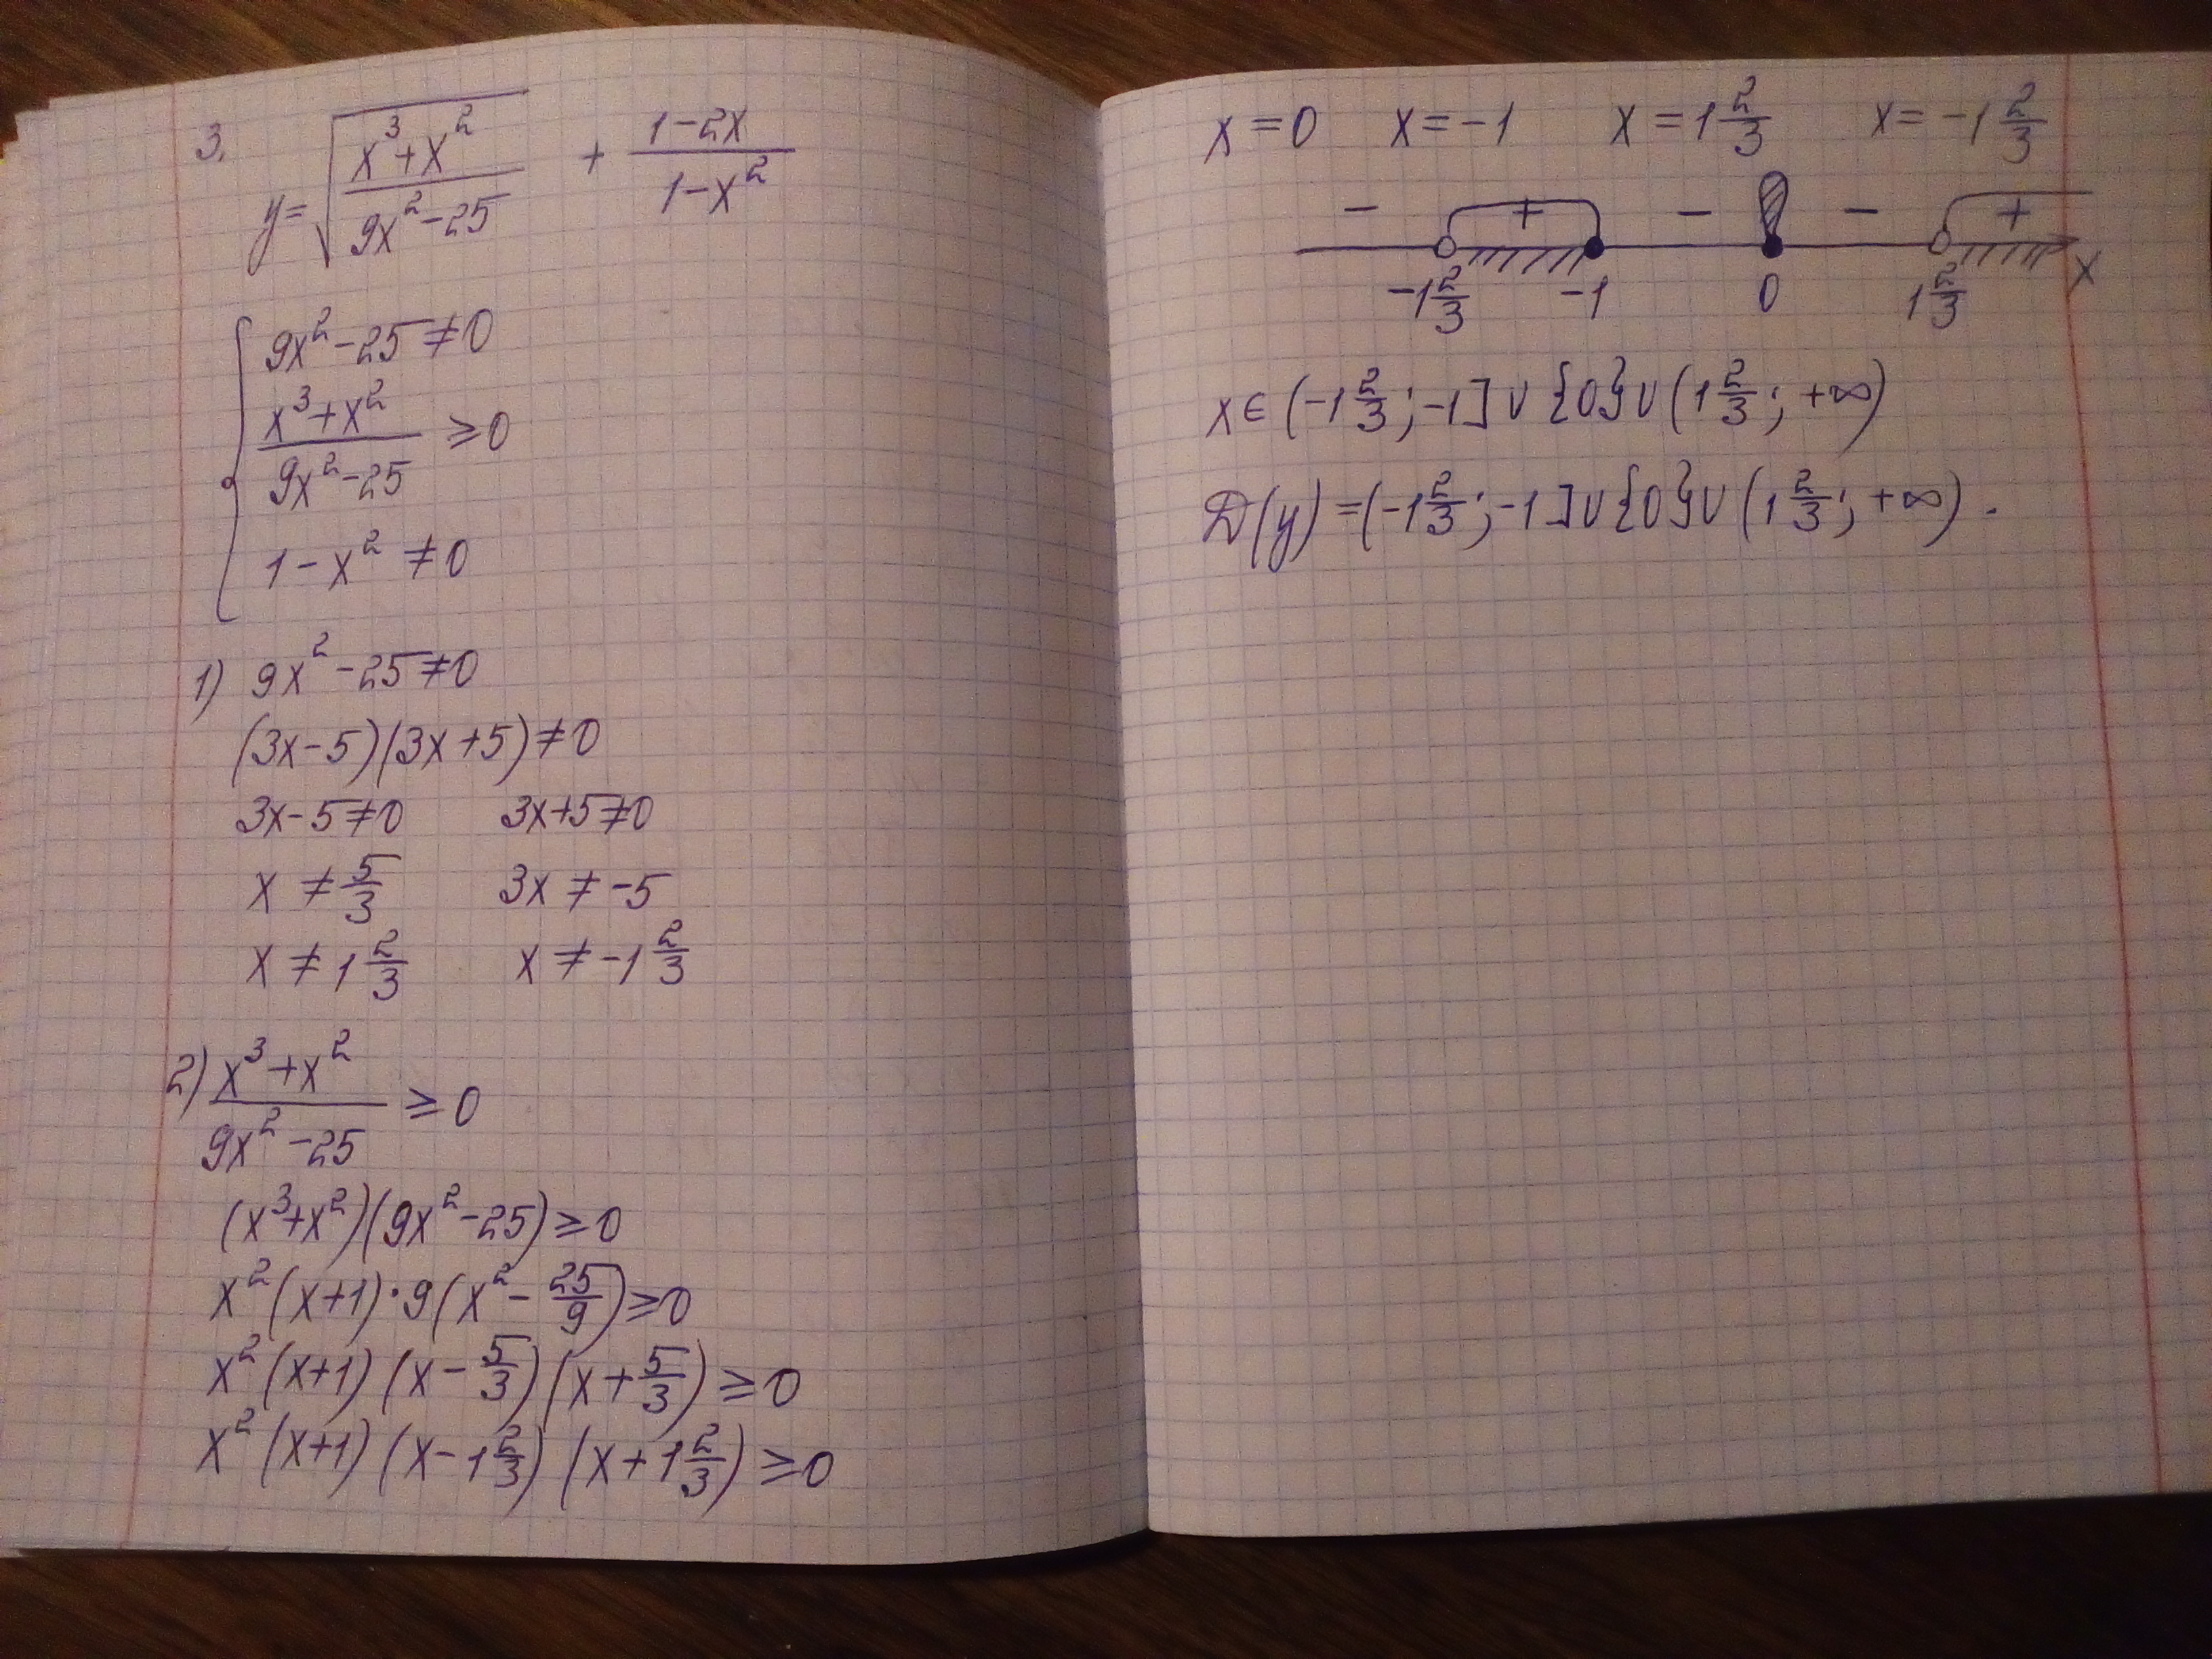 3. y = √((x³+x²)/(9x²-25)) + (1-2x)/(1-x²)
{ 9x²-25≠0
(x³+x²)/(9x²-25) ≥0
1-x² ≠0
1) 9x²-25≠0
(3x-5)(3x+5)≠0
3x-5≠0 3x+5≠0
x ≠ 5/3 3x ≠ -5
x ≠ 1 2/3 x ≠ -1 2/3
2) (x³+x²)/(9x²-25) ≥ 0
(x³+x²)(9x²-25)≥0
x²(x+1)·9(x²- 25/9)≥0
x²(x+1)(x- 5/3)(x+ 5/3) ≥0
x²(x+1)(x-1 2/3)(x+1 2/3) ≥0
x=0 x=-1 x=1 2/3 x= -1 2/3
- + - - +
-1 2/3 -1 0 1 2/3 x
x∈(-1 2/3; -1]∪{0}∪(1 2/3; +∞)
D(y)=(-1 2/3; -1]∪{0}∪(1 2/3; +∞).